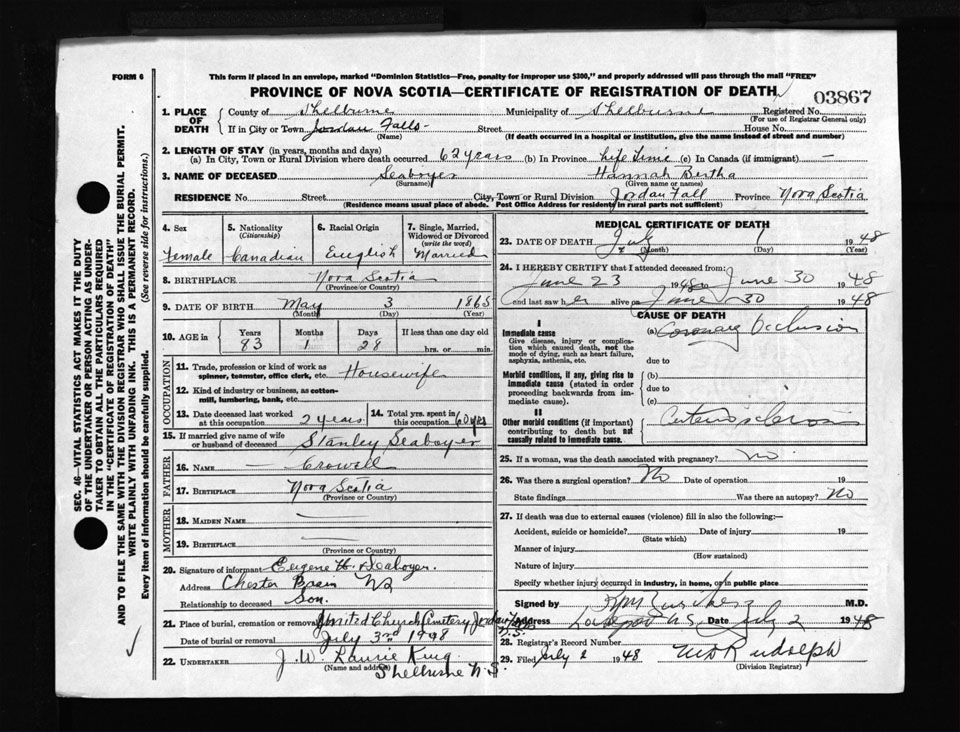 FORM 6
This form if placed in an envelope, marked "Dominion Statistics—Free, penalty for improper use $300," and properly addressed will pass through the mail "FREE"
PROVINCE OF NOVA SCOTIA—CERTIFICATE OF REGISTRATION OF DEATH
03867
1. PLACE OF DEATH
County of Shelburne Municipality of Shelburne Registered No.
(For use of Registrar General only)
If in City or Town Jordan Falls Street House No.
(Name) (If death occurred in a hospital or institution, give the name instead of street and number)
2. LENGTH OF STAY (in years, months and days)
(a) In City, Town or Rural Division where death occurred 62 years (b) In Province Life Time (c) In Canada (if immigrant) —
3. NAME OF DECEASED Seaboyer Hannah Bertha
(Surname) (Given name or names)
RESIDENCE No. Street City, Town or Rural Division Jordan Fall Province Nova Scotia
(Residence means usual place of abode. Post Office Address for residents in rural parts not sufficient)
4. Sex 5. Nationality 6. Racial Origin 7. Single, Married, Widowed or Divorced
(Citizenship) (write the word)
Female Canadian English Married
8. BIRTHPLACE Nova Scotia
(Province or Country)
9. DATE OF BIRTH May 3 1865
(Month) (Day) (Year)
10. AGE in Years Months Days If less than one day old
83 1 28 hrs. or min.
OCCUPATION
11. Trade, profession or kind of work as spinner, teamster, office clerk, etc. Housewife
12. Kind of industry or business, as cotton-mill, lumbering, bank, etc.
13. Date deceased last worked at this occupation 2 years 14. Total yrs. spent in this occupation 60 yrs
15. If married give name of wife or husband of deceased Stanley Seaboyer
FATHER
16. NAME — Crowell
17. BIRTHPLACE Nova Scotia
(Province or Country)
MOTHER
18. MAIDEN NAME —
19. BIRTHPLACE —
(Province or Country)
20. Signature of informant Eugene W. Seaboyer.
Address Chester Basin NS
Relationship to deceased Son.
21. Place of burial, cremation or removal United Church Cemetery Jordan Falls N.S.
Date of burial or removal July 3rd 1948
22. UNDERTAKER J. W. Laurie King
(Name and address) Shelburne N.S.
MEDICAL CERTIFICATE OF DEATH
23. DATE OF DEATH July 1 1948
(Month) (Day)
24. I HEREBY CERTIFY that I attended deceased from:
June 23 1948 to June 30 1948
and last saw her alive on June 30 1948
CAUSE OF DEATH
I
Immediate cause
Give disease, injury or complication which caused death, not the mode of dying, such as heart failure, asphyxia, asthenia, etc.
(a) Coronary Occlusion
due to
Morbid conditions, if any, giving rise to immediate cause (stated in order proceeding backwards from immediate cause)
(b)
due to
(c)
II
Other morbid conditions (if important) contributing to death but not causally related to immediate cause.
Arteriosclerosis
25. If a woman, was the death associated with pregnancy? No.
26. Was there a surgical operation? No Date of operation 19
State findings Was there an autopsy? No
27. If death was due to external causes (violence) fill in also the following:—
Accident, suicide or homicide? Date of injury 19
(State which)
Manner of injury
(How sustained)
Nature of injury
Specify whether injury occurred in industry, in home, or in public place
Signed by M.D.
Address Lockeport N.S. Date July 2 1948
28. Registrar's Record Number
29. Filed July 2 1948 Rudolph
(Division Registrar)
SEC. 46—VITAL STATISTICS ACT MAKES IT THE DUTY
OF THE UNDERTAKER OR PERSON ACTING AS UNDERTAKER
TO OBTAIN ALL THE PARTICULARS REQUIRED
IN THE "CERTIFICATE OF REGISTRATION OF DEATH"
AND TO FILE THE SAME WITH THE DIVISION REGISTRAR WHO SHALL ISSUE THE BURIAL PERMIT.
WRITE PLAINLY WITH UNFADING INK. THIS IS A PERMANENT RECORD.
Every item of information should be carefully supplied. (See reverse side for instructions.)